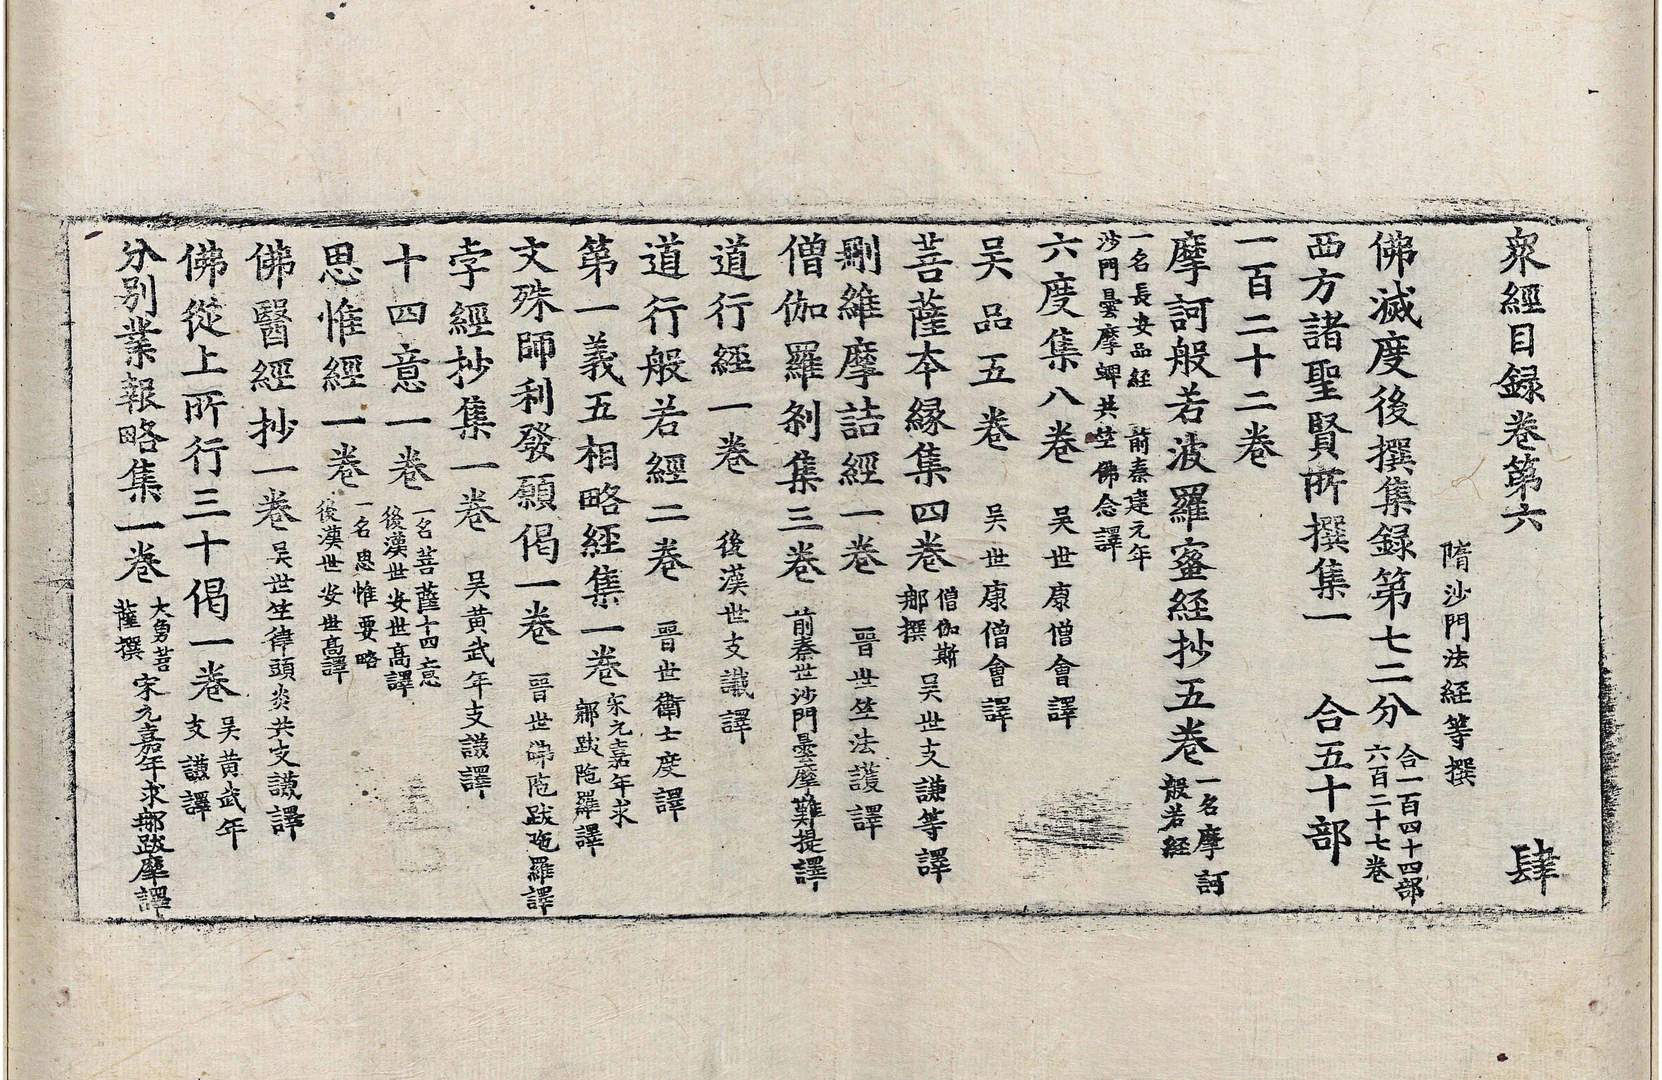 衆經目録卷第六 肆
隋沙門法經等撰
佛滅度後撰集録第七二分 合一百四十四部六百二十七卷
西方諸聖賢所撰集一 合五十部
一百二十二卷
摩訶般若波羅蜜經抄五卷 一名摩訶般若經
一名長安品經 前秦建元年沙門曇摩蜱共竺佛念譯
六度集八卷 吴世康僧會譯
吴品五卷 吴世康僧會譯
菩薩本縁集四卷 僧伽斯那撰 吴世支謙等譯
刪維摩詰經一卷 晉世竺法護譯
僧伽羅刹集三卷 前秦世沙門曇摩難提譯
道行經一卷 後漢世支讖譯
道行般若經二卷 晉世衛士度譯
第一義五相略經集一卷 宋元嘉年求那跋陁羅譯
文殊師利發願偈一卷 晉世佛陁跋陁羅譯
孛經抄集一卷 吴黄武年支謙譯
十四意一卷 一名菩薩十四意 後漢世安世高譯
思惟經一卷 一名思惟要略 後漢世安世高譯
佛醫經抄一卷 吴世竺律頭炎共支謙譯
佛從上所行三十偈一卷 吴黄武年支謙譯
分别業報略集一卷 大勇菩薩撰 宋元嘉年求那跋摩譯